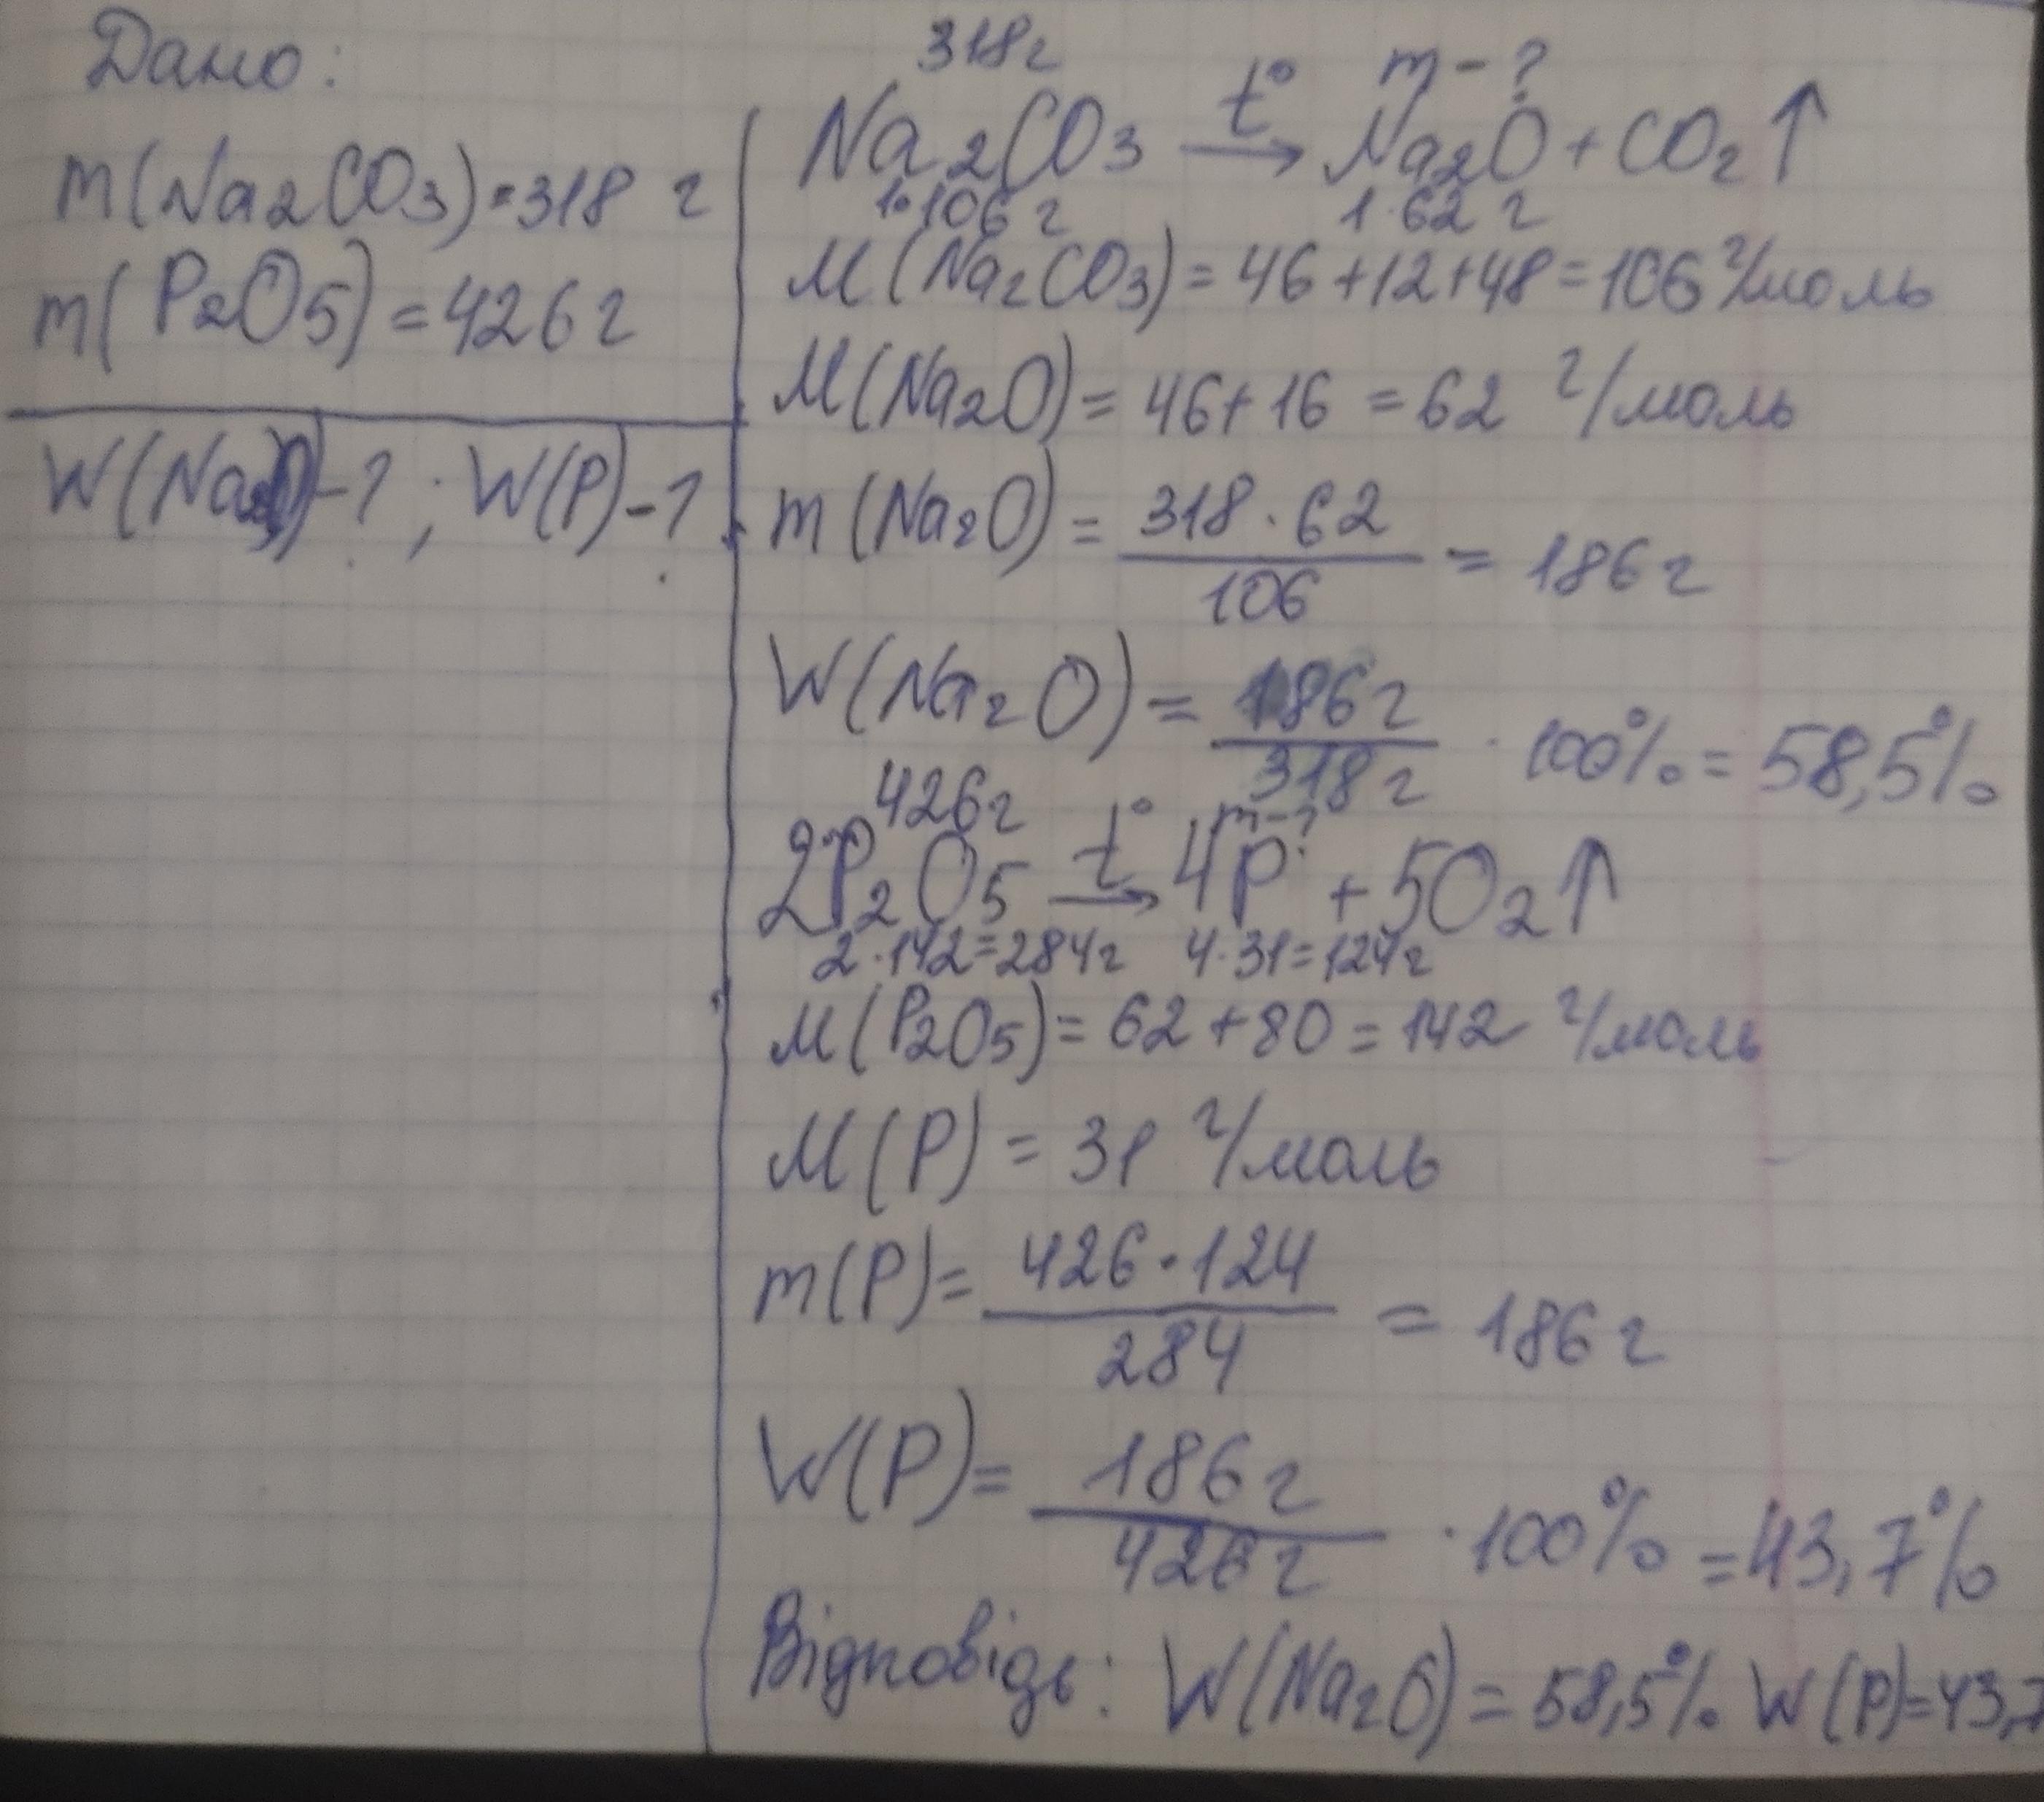 Дано:
m(Na2CO3)=318 г
m(P2O5)=426г
W(Na2O)-? ; W(P)-?
318г
m-?
Na2CO3 t°→ Na2O + CO2↑
1·106 г 1·62 г
M(Na2CO3)=46+12+48=106 г/моль
M(Na2O)=46+16=62 г/моль
m(Na2O)= 318·62/106 = 186г
W(Na2O)= 186г/318г · 100% = 58,5%
426г m-?
2P2O5 t°→ 4P + 5O2↑
2·142=284г 4·31=124г
M(P2O5)=62+80=142 г/моль
M(P)=31 г/моль
m(P)= 426·124/284 = 186г
W(P)= 186г/426г · 100% =43,7%
Відповідь: W(Na2O)=58,5% W(P)=43,7